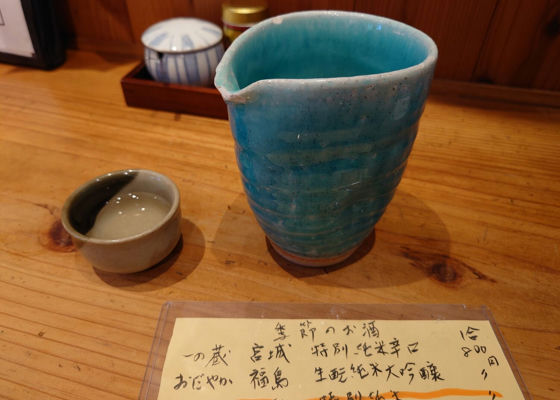 季節のお酒
1合
一の蔵 宮城 特別純米辛口 800円
おだやか 福島 生酛純米大吟醸 〃
特別純米 〃